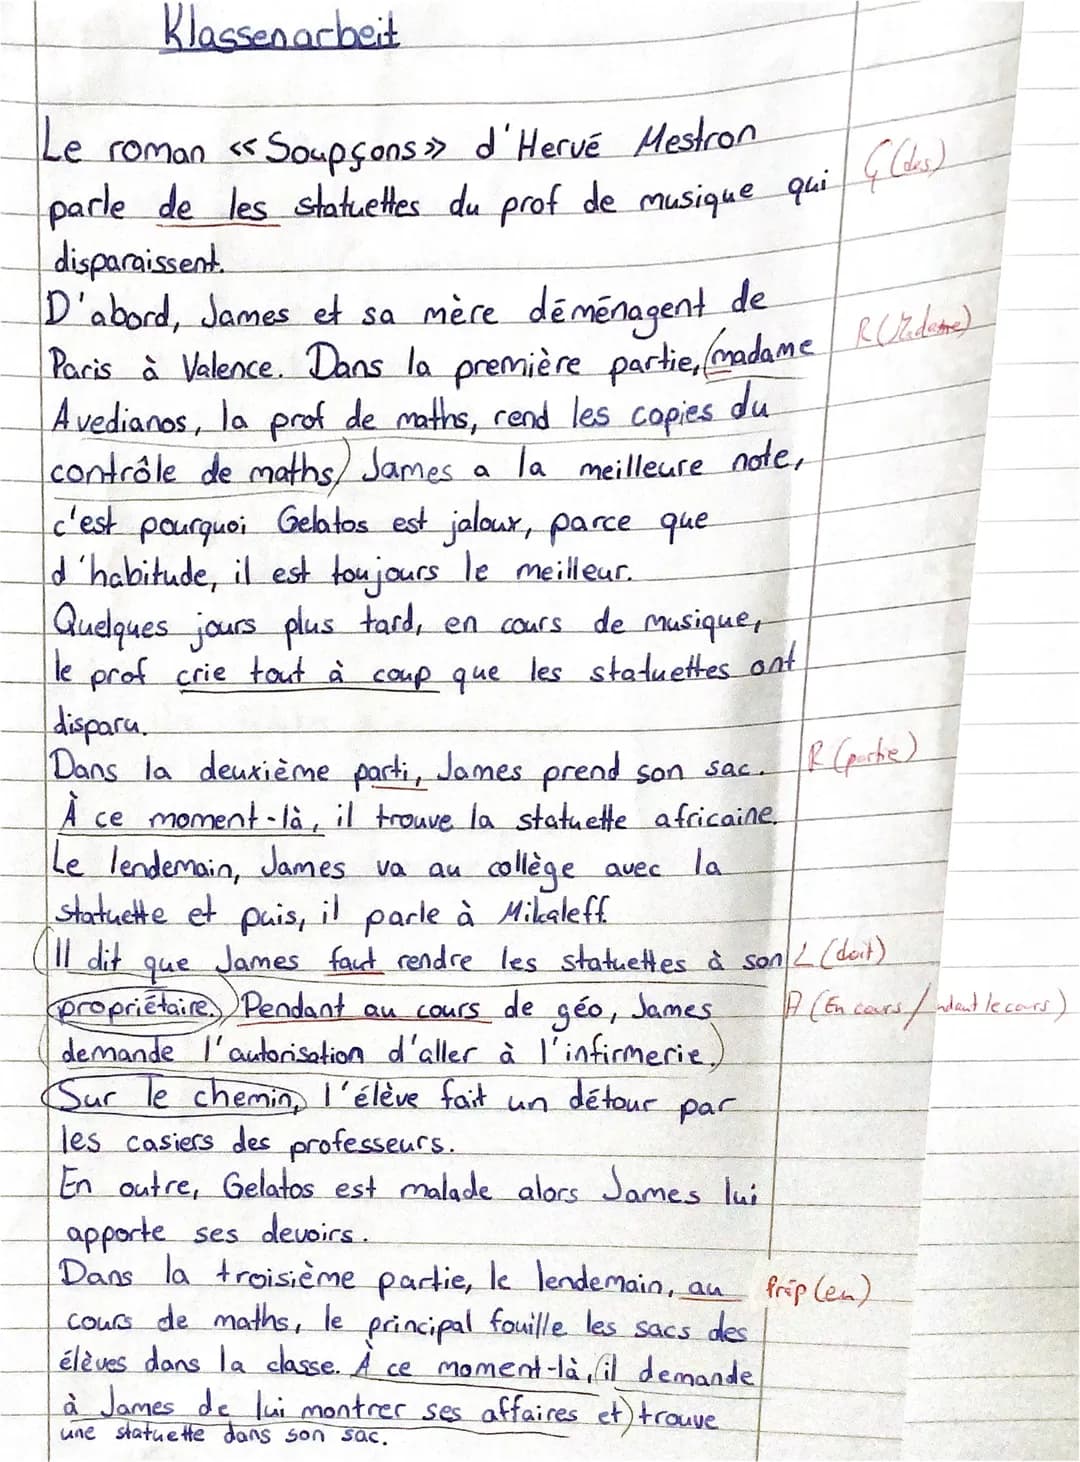 Klassenarbeit
Le roman «Soupçons» d'Hervé Mestron
parle de les statuettes du prof de musique qui G (des)
disparaissent.
D'abord, James et sa mère déménagent de
Paris à Valence. Dans la première partie, (madame R (Madame)
Avedianos, la prof de maths, rend les copies du
contrôle de maths) James a la meilleure note,
c'est pourquoi Gelatos est jaloux, parce que
d'habitude, il est toujours le meilleur.
Quelques jours plus tard, en cours de musique,
le prof crie tout à coup que les statuettes ont
disparu.
Dans la deuxième parti, James prend son sac. R (partie)
À ce moment-là, il trouve la statuette africaine.
Le lendemain, James va au collège avec la
statuette et puis, il parle à Mikaleff.
(Il dit que James faut rendre les statuettes à son L (doit)
propriétaire.) Pendant au cours de géo, James A (En cours / ndant le cours)
demande l'autorisation d'aller à l'infirmerie.)
Sur le chemin, l'élève fait un détour par
les casiers des professeurs.
En outre, Gelatos est malade alors James lui
apporte ses devoirs.
Dans la troisième partie, le lendemain, au Präp (en)
cours de maths, le principal fouille les sacs des
élèves dans la classe. À ce moment-là, (il demande
à James de lui montrer ses affaires et) trouve
une statuette dans son sac.